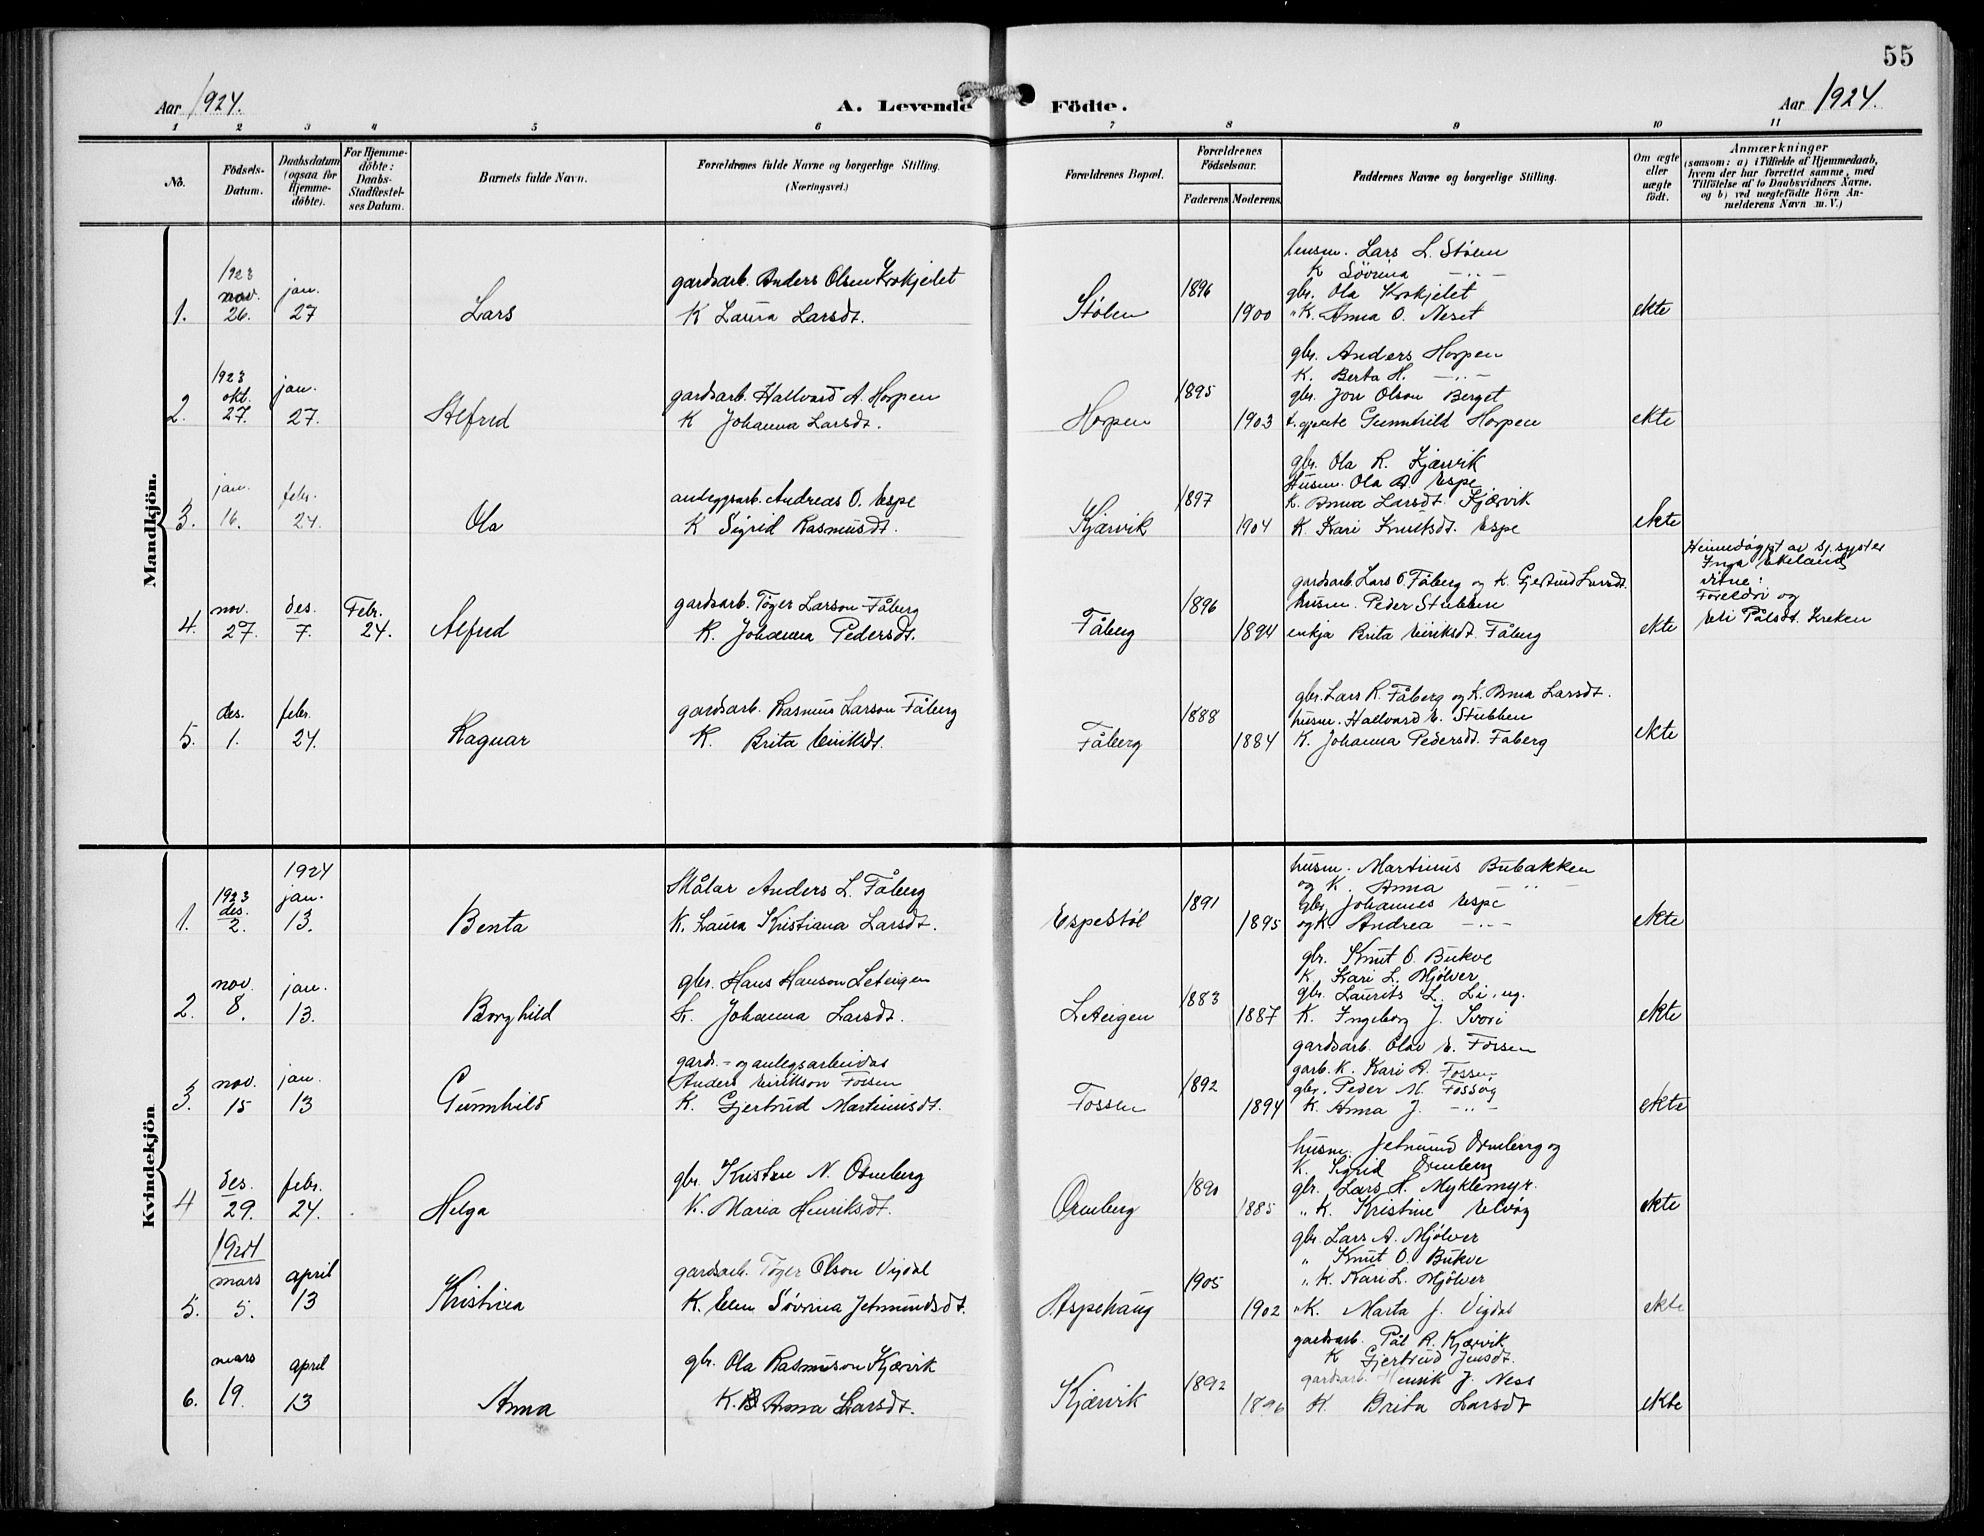 55
Aar 1924.
A. Levende Födte.
Aar 1924.
1 2 3 4 5 6 7 8 9 10 11
No.
Födsels-Datum.
Daabsdatum (ogsaa for Hjemmedöbte).
For Hjemmedöbte: Daabs-Stadfæstelses Datum.
Barnets fulde Navn.
Forældrenes fulde Navne og borgerlige Stilling.
(Næringsvei.)
Forældrenes Bopæl.
Forældrenes Födselsaar.
Faderens Moderens.
Faddernes Navne og borgerlige Stilling.
Om ægte eller uægte födt.
Anmærkninger
(saasom: a) i Tilfælde af Hjemmedaab, hvem der har forrettet samme, med Tilföielse af to Daabsvidners Navne. og b) ved uægtefödte Börn Anmelderens Navn m. V.)
Mandkjön.
1. 1923 nov. 26. jan. 27 Lars
gardsarb. Anders Olsen Krokjelet
K Laura Larsdt.
Stölen 1896 1900
husm. Lars L. Stöen
K Sövrina —"—
gbr. Ola Krokjelet
" K. Anna O. Neset
ekte
2. 1923 okt. 27. jan. 27. Alfred
gardsarb. Hallvard A. Horpen
K Johanna Larsdt.
Horpen 1895 1903
gbr. Anders Horpen
K. Berta H. —"—
gbr. Jon Olson Berget
t. gjente Gunnhild Horpen
ekte
3. jan. 16. febr. 24. Ola
anleggsarb. Andreas O. Espe
K Sigrid Rasmusdt.
Kjærvik 1897 1904
gbr. Ola R. Kjærvik
Husm. Ola A. Espe
K. Anna Larsdt. Kjærvik
K. Kari Knutsdt. Espe
ekte
4. nov. 27. des. 7. Febr. 24. Alfred
gardsarb. Töger Larson Fåberg
K. Johanna Pedersdt.
Fåberg 1896 1894
gardsarb. Lars O. Fåberg og K. Gjertrud Larsdt.
husm. Peder Stubben
enkja Brita Eiriksdt. Fåberg
ekte
Heimedöypt av sj.syster
Inga Ekeland
vitne:
Foreldri og
Eli Pålsdt. Kreken
5. des. 1. febr. 24. Ragnar
gardsarb. Rasmus Larson Fåberg
K. Brita Eiriksdt.
Fåberg 1888 1884
gbr. Lars R. Fåberg og K. Anna Larsdt.
husm. Hallvard E. Stubben
K. Johanna Pedersdt. Faberg
ekte
Kvindekjön
1. 1923 des. 2. 1924 jan. 13. Benta
Målar Anders L. Fåberg
K. Laura Kristiana Larsdt.
Espestöl 1891 1895
husm. Martinus Bubakken
og K. Anna —"—
Gbr. Johannes Espe
og K Andrea —"—
ekte
2. nov. 8. jan. 13. Borghild
gbr. Hans Hanson Leteigen
K. Johanna Larsdt.
Leteigen 1883 1887
gbr. Knut O. Bukve
K. Kari L. Mjölver
gbr. Laurits L. Li, ug.
K. Ingeborg J.
ekte
3. nov. 15 jan. 13 Gunnhild
gards- og anlegsarbeidar
Anders Eirikson Fossen
K. Gjertrud Martinusdt.
Fossen 1892 1894
gardsarb. Olav E. Fossen
garb. K. Kari A. Fossen
gbr. Peder M. Fossöy
K. Anna J. —"—
ekte
4 des. 29. febr. 24. Helga
gbr. Kristen N. Ormberg
K. Maria Henriksdt.
Ormberg 1890 1885
husm. Jetmund Ormberg og
K. Sigrid Ormberg
gbr. Lars H. Myklemyr.
" K. Kristine Elvöy
ekte
5. 1924 mars 5. april 13 Kristina
gardsarb. Töger Olson Vigdal
K. Elen Sövrina Jetmundsdt.
Aspehaug 1905 1902
gbr. Lars A. Mjölver
" Knut O. Bukve
" K. Kari L. Mjölver
" K. Marta J. Vigdal
ekte
6. mars 19. april 13 Anna
gbr. Ola Rasmuson Kjærvik
K. Anna Larsdt.
Kjærvik 1892 1896
gardsarb. Pål R. Kjærvik
K Gjertrud Jensdt.
gardsarb. Henrik J. Ness
K Brita Larsdt
ekte